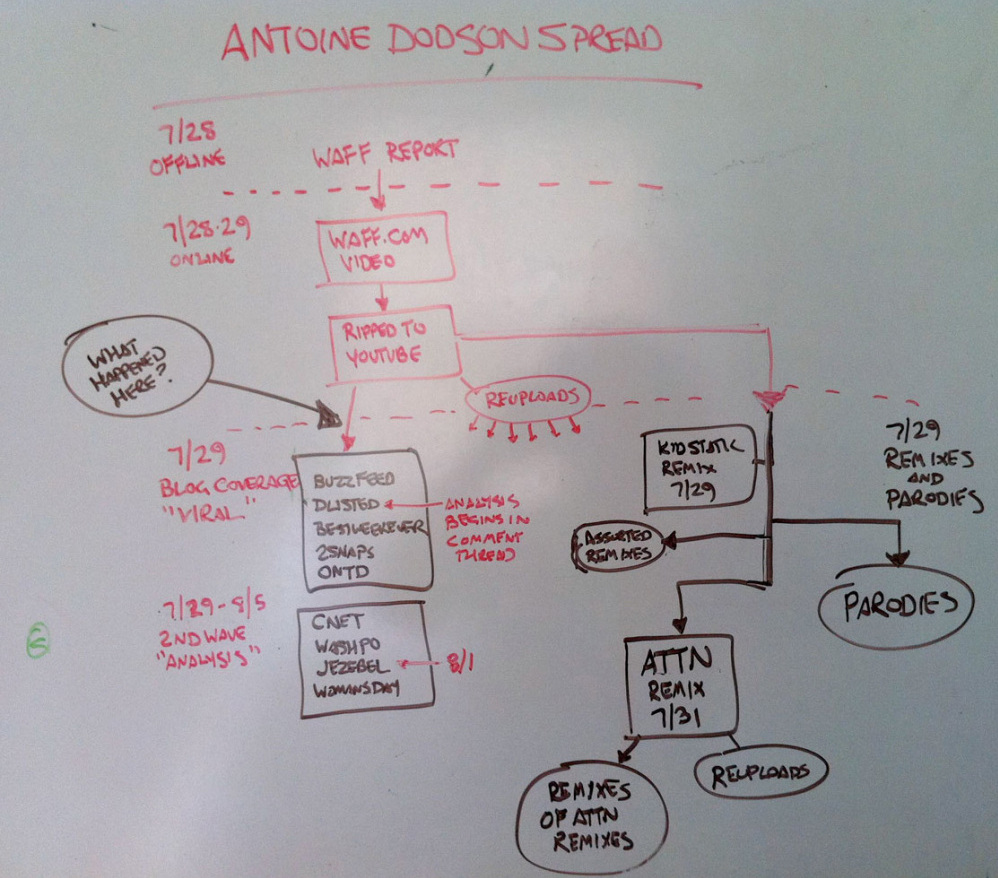 ANTOINE DODSON SPREAD
7/28
OFFLINE
WAFF REPORT
7/28-29
ONLINE
WAFF.COM
VIDEO
RIPPED TO
YOUTUBE
WHAT
HAPPENED
HERE?
REUPLOADS
7/29
BLOG COVERAGE
"VIRAL"
BUZZFEED
DLISTED
BESTWEEKEVER
2SNAPS
ONTD
ANALYSIS
BEGINS IN
COMMENT
THREAD
KIDSTATIC
REMIX
7/29
ASSORTED
REMIXES
7/29
REMIXES
AND
PARODIES
PARODIES
7/29-8/5
2ND WAVE
"ANALYSIS"
CNET
WASHPO
JEZEBEL
WOMANSDAY
8/1
ATTN
REMIX
7/31
REUPLOADS
REMIXES
OF ATTN
REMIXES